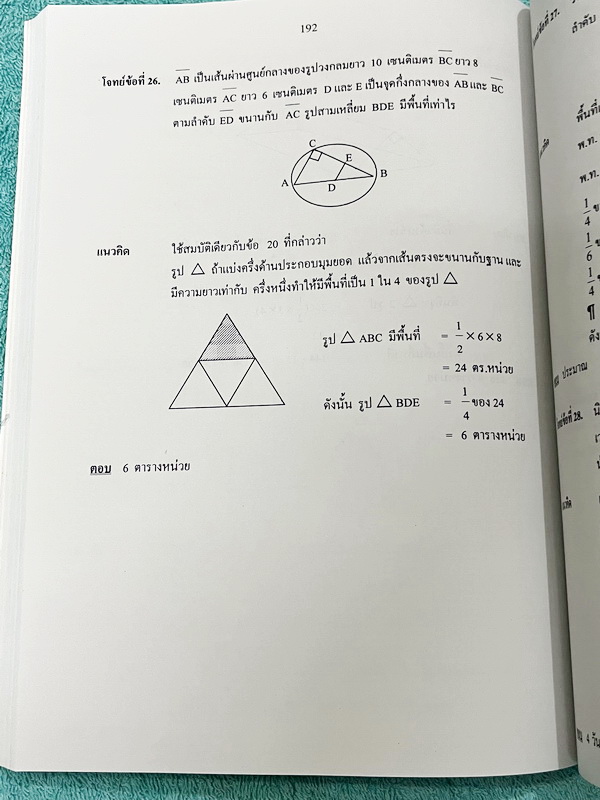 192
โจทย์ข้อที่ 26. AB เป็นเส้นผ่านศูนย์กลางของรูปวงกลมยาว 10 เซนติเมตร BC ยาว 8
เซนติเมตร AC ยาว 6 เซนติเมตร D และ E เป็นจุดกึ่งกลางของ AB และ BC
ตามลำดับ ED ขนานกับ AC รูปสามเหลี่ยม BDE มีพื้นที่เท่าไร
C
E
A
D
B
แนวคิด ใช้สมบัติเดียวกับข้อ 20 ที่กล่าวว่า
รูป △ ถ้าแบ่งครึ่งด้านประกอบมุมยอด แล้วจากเส้นตรงจะขนานกับฐาน และ
มีความยาวเท่ากับ ครึ่งหนึ่งทำให้มีพื้นที่เป็น 1 ใน 4 ของรูป △
รูป △ ABC มีพื้นที่ = 1/2 × 6 × 8
= 24 ตร.หน่วย
ดังนั้น รูป △ BDE = 1/4 ของ 24
= 6 ตารางหน่วย
ตอบ 6 ตารางหน่วย
โจทย์ข้อที่ 27.
พ.ท.
พ.ท.
1/4
1/6
1/4
¶
ประมาณ
โจทย์ข้อที่ 28.
4 วัน